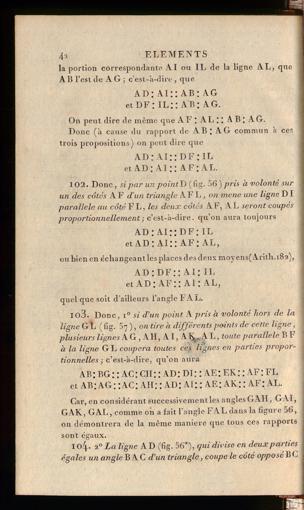 42 ELEMENTS
la portion correspondante AI ou IL de la ligne AL, que
AB l'est de AG ; c'est-à-dire, que
AD : AI :: AB : AG
et DF : IL :: AB : AG.
On peut dire de même que AF : AL :: AB : AG.
Donc (à cause du rapport de AB : AG commun à ces
trois propositions) on peut dire que
AD : AI :: DF : IL
et AD : AI :: AF : AL.
102. Donc, si par un point D (fig. 56) pris à volonté sur
un des côtés AF d'un triangle AFL, on mene une ligne DI
parallele au côté FL, les deux côtés AF, AL seront coupés
proportionnellement ; c'est-à-dire. qu'on aura toujours
AD : AI :: DF : IL
et AD : AI :: AF : AL,
ou bien en échangeant les places des deux moyens (Arith. 182),
AD : DF :: AI : IL
et AD : AF :: AI : AL,
quel que soit d'ailleurs l'angle FAL.
103. Donc, 1° si d'un point A pris à volonté hors de la
ligne GL (fig. 57), on tire à différents points de cette ligne,
plusieurs lignes AG, AH, AI, AK, AL, toute parallele BF
à la ligne GL coupera toutes ces lignes en parties propor-
tionnelles ; c'est-à-dire, qu'on aura
AB : BG :: AC : CH :: AD : DI :: AE : EK :: AF : FL
et AB : AG :: AC : AH :: AD : AI :: AE : AK :: AF : AL.
Car, en considérant successivement les angles GAH, GAI,
GAK, GAL, comme on a fait l'angle FAL dans la figure 56,
on démontrera de la même maniere que tous ces rapports
sont égaux.
104. 2° La ligne AD (fig. 56*), qui divise en deux parties
égales un angle BAC d'un triangle, coupe le côté opposé BC